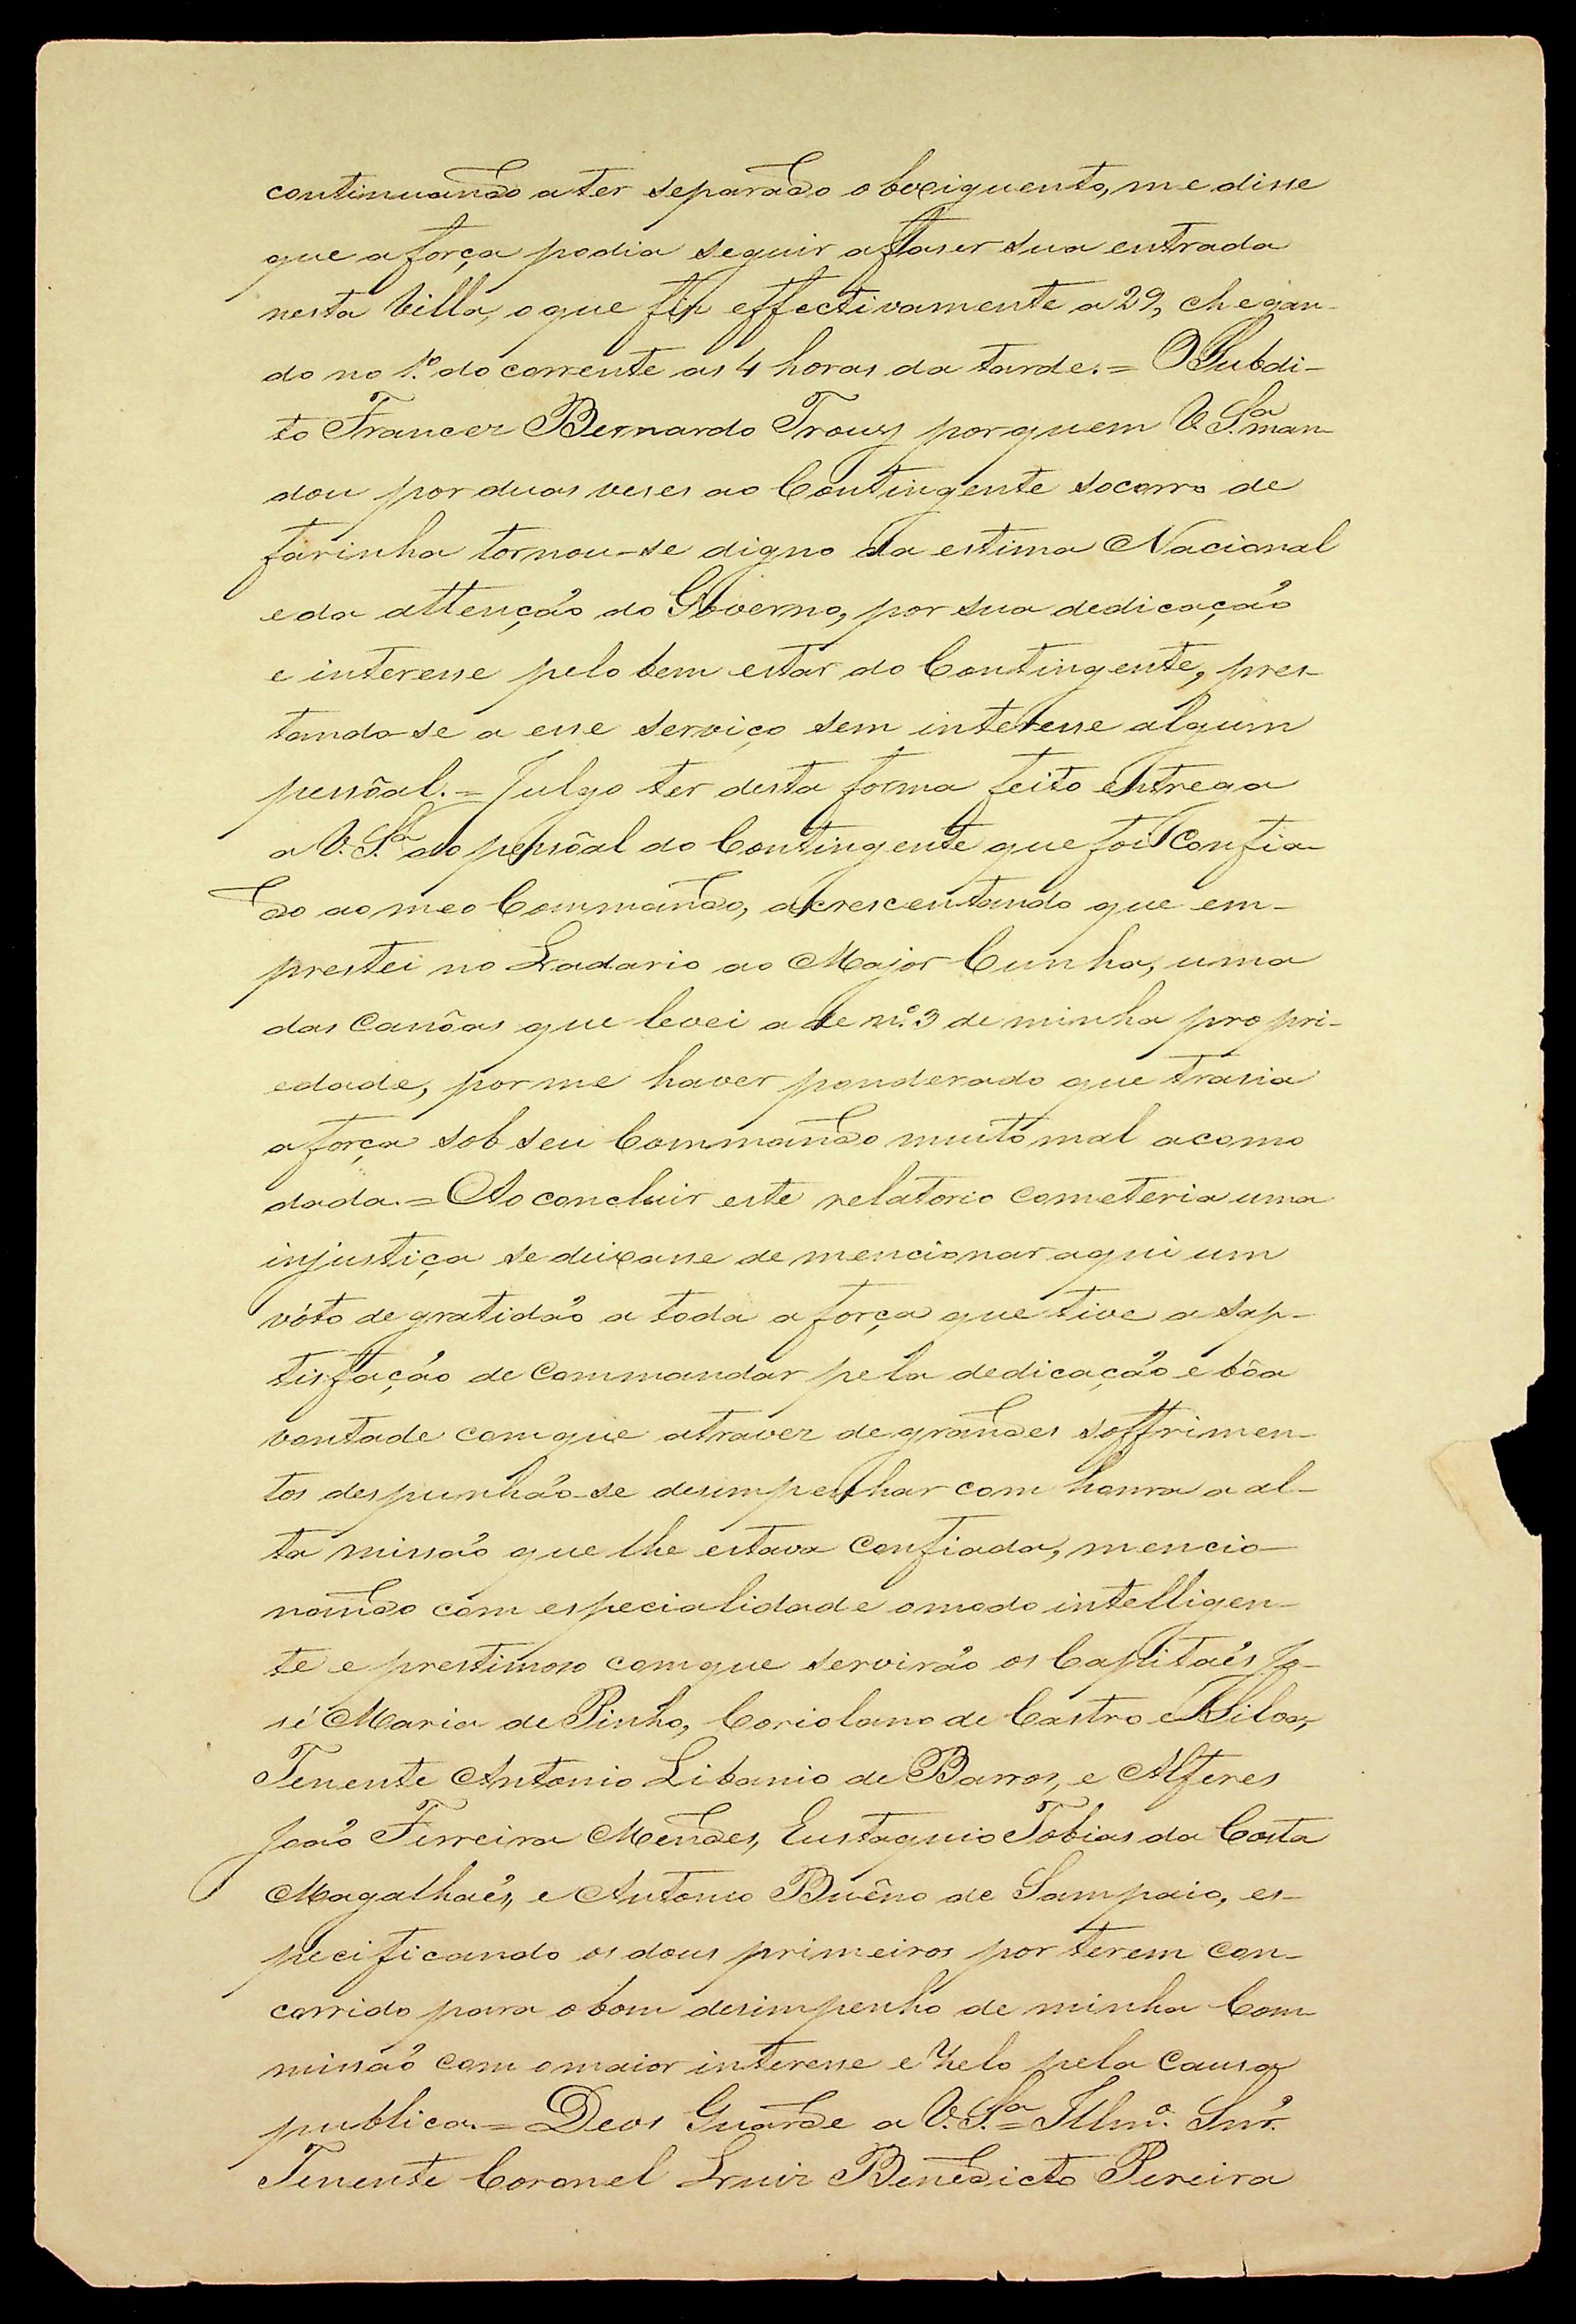 continuando a ter separado o bexiguento, me disse
que a força podia seguir a faser sua entrada
nesta Villa, o que fiz effectivamente a 29, chegan-
do no 1.º do corrente as 4 horas da tarde. = O Subdi-
to Francez Bernardo Trouy por quem V. S.ª man-
dou por duas veses ao Contingente socorro de
farinha tornou-se digno da estima Nacional
e da attenção do Governo, por sua dedicação
e interesse pelo bem estar do Contingente, pres-
tando-se a esse serviço sem interesse algum
pessôal. = Julgo ter desta forma feito entrega
a V. S.ª do pessôal do Contingente que foi confia-
do ao meo Commando, acrescentando que em-
prestei no Ladario ao Major Cunha, uma
das canôas que levei a de n.º 3 de minha propri-
edade, por me haver ponderado que trasia
a força sob seu Commando muito mal acomo
dada. = Ao concluir este relatorio cometeria uma
injustiça se deixasse de mencionar aqui um
vóto de gratidão a toda a força que tive a sap-
tisfação de commandar pela dedicação e bôa
vontade com que atravez de grandes soffrimen-
tos despunhão-se desimpenhar com honra a al-
ta missão que lhe estava confiada, mencio-
nando com especialidade o modo intelligen-
te e prestimoso com que servirão os Capitaẽs Jo-
sé Maria de Pinho, Coriolano de Castro e Silva,
Tenente Antonio Libanio de Barros, e Alferes
João Ferreira Mendes, Eustaquio Tobias da Costa
Magalhaẽs, e Antonio Buêno de Sampaio, es-
pecificando os dous primeiros por terem con-
corrido para o bom desimpenho de minha Com-
missão com o maior interesse e zelo pela causa
publica. = Deos Guarde a V. S.ª = Illm.º Snr.
Tenente Coronel Luiz Benedicto Pereira